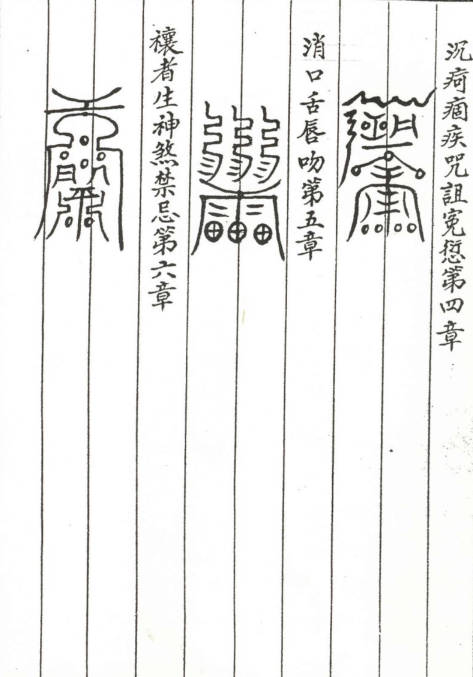 沉疴痼疾咒詛冤愆第四章
消口舌唇吻第五章
禳者生神煞禁忌第六章